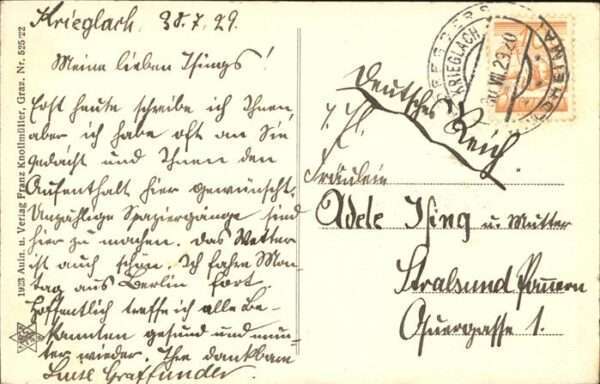 Krieglach, 30.7.29.
Meine lieben Isings!
Erst heute schreibe ich Ihnen,
aber ich habe oft an Sie
gedacht und Ihnen den
Aufenthalt hier gewünscht.
Unzählige Spaziergänge sind
hier zu machen. Das Wetter
ist auch schön. Ich fahre Mon-
tag aus Berlin fort.
Hoffentlich treffe ich alle Be-
kannten gesund und mun-
ter wieder. Ihre dankbare
1923 Aufn. u. Verlag Franz Knollmüller, Graz. Nr. 525/22
KRIEGLACH
Deutsches Reich
Fräulein
Adele Ising u. Mutter
Stralsund Pommern
1.